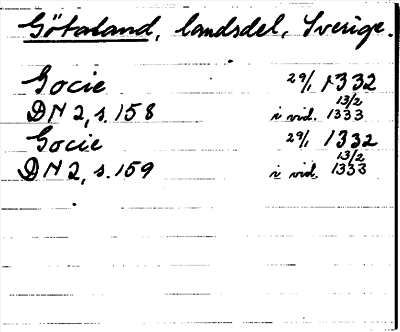 Götaland, landsdel, Sverige.
Gocie 29/1 1332
DN 2, s. 158 i vid. 13/2 1333
Gocie 29/1 1332
DN 2, s. 159 i vid. 13/2 1333